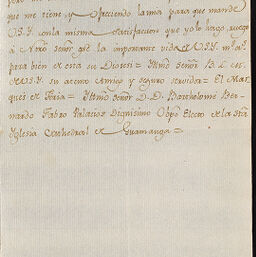 que me tiene, y Ofreciendo la mia para que mande
VSY. con la misma satisfaccion que yo lo hago, ruego
à Nr̃o Señor gũe la importante vida de VSY. m.s a.s
para bien de esta su Diocesi = Yllm̃o Señor B. L. M.
de VSY. su atento Amigo y seguro servidor = El Mar
ques de Feria = Yllm̃o Señor D. D. Bartholomè Ber-
nardo Fabro Palacios Dignissimo Obp̃o Electo de la Sta
Yglesia Cathedral de Guamanga =